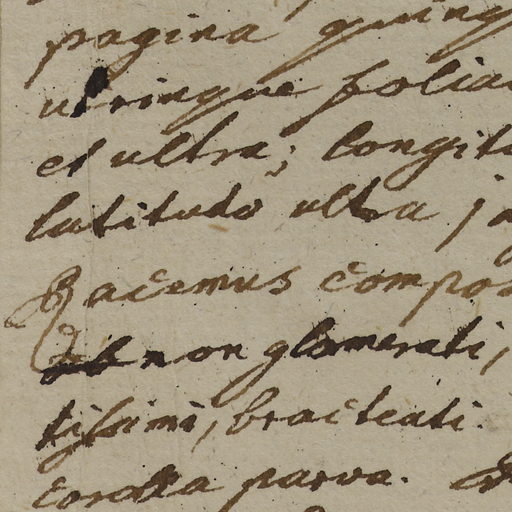 pagina quinq
utrinque folia
et ultra; longit
latitudo ultra
Racemus compo
non glomerati,
bracteati.
corolla parva.